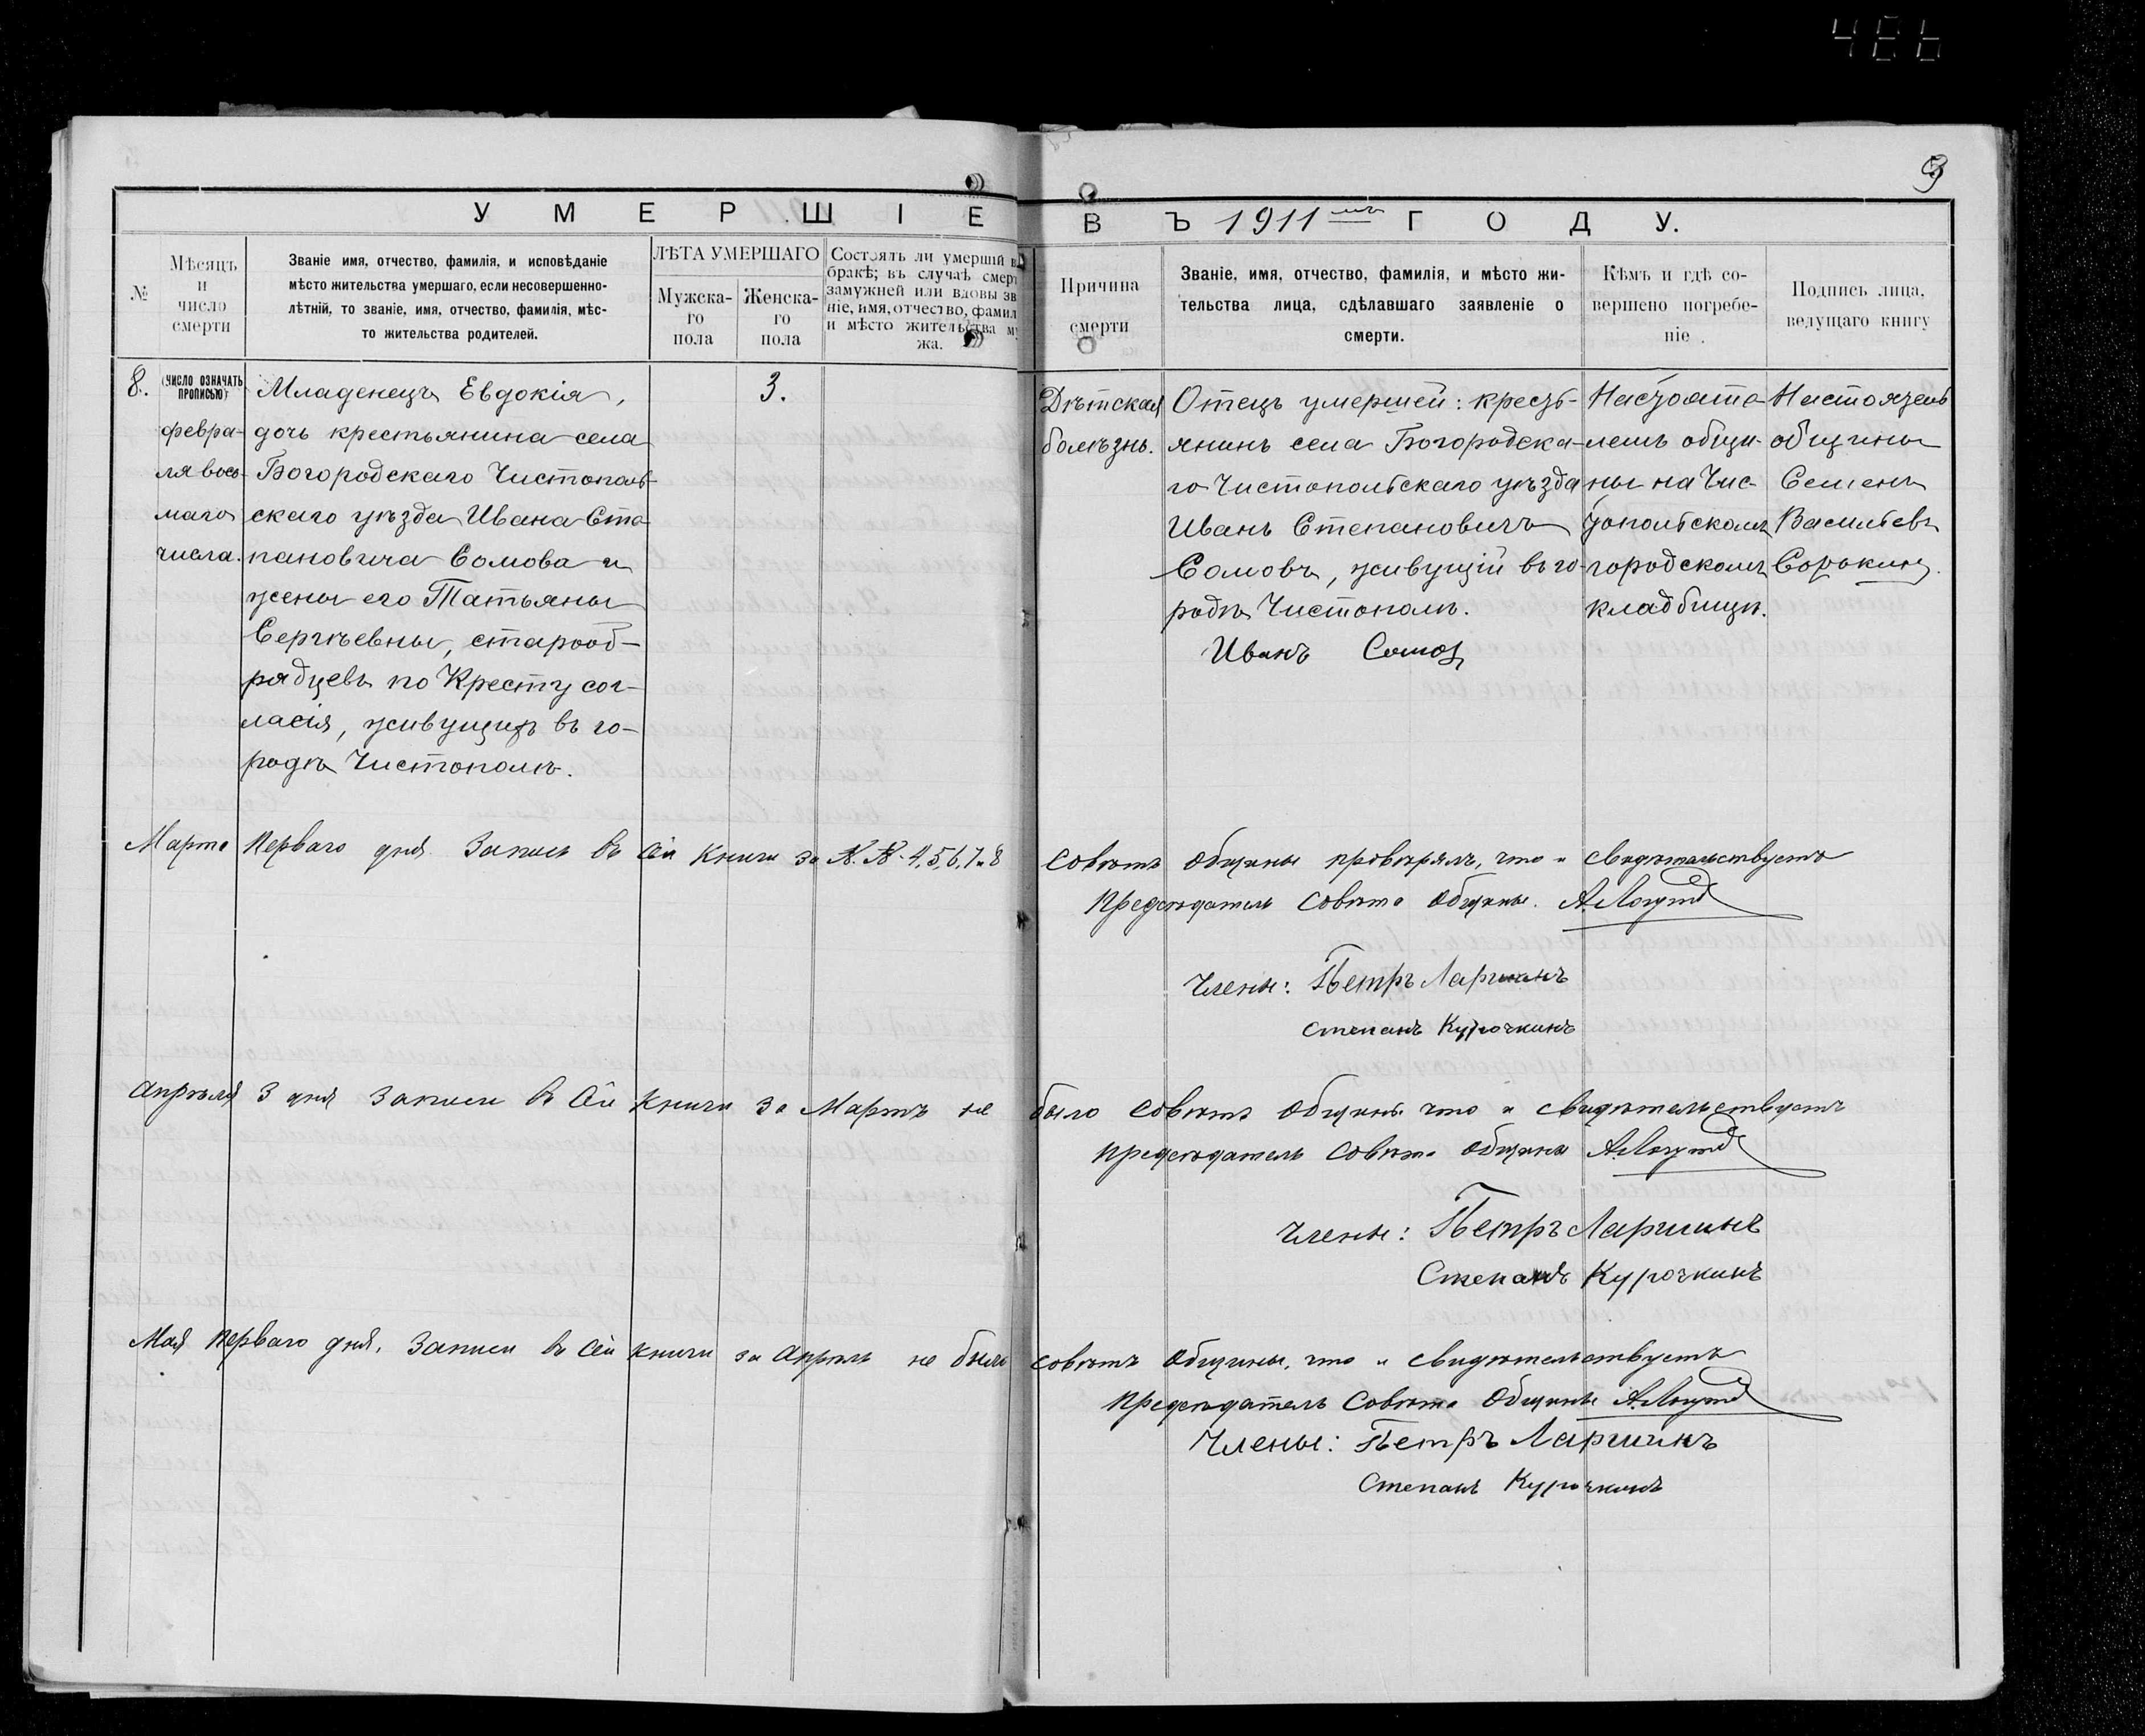 3
УМЕРШІЕ ВЪ 1911мъ ГОДУ.
№
Мѣсяцъ
и
число
смерти
Званіе имя, отчество, фамилія, и исповѣданіе
мѣсто жительства умершаго, если несовершенно-
лѣтній, то званіе, имя, отчество, фамилія, мѣс-
то жительства родителей.
ЛѢТА УМЕРШАГО
Мужска-
го
пола
Женска-
го
пола
Состоялъ ли умершій въ
бракѣ; въ случаѣ смерт
замужней или вдовы зв
ніе, имя, отчество, фамил
и мѣсто жительства му
жа.
Причина
смерти
Званіе, имя, отчество, фамилія, и мѣсто жи-
тельства лица, сдѣлавшаго заявленіе о
смерти.
Кѣмъ и гдѣ со-
вершено погребе-
ніе.
Подпись лица,
ведущаго книгу
8.
(ЧИСЛО ОЗНАЧАТЬ
ПРОПИСЬЮ)
февра-
ля вось-
маго
числа.
Младенецъ Евдокія,
дочь крестьянина села
Богородскаго Чистополь-
скаго уѣзда Ивана Сте-
пановича Сомова и
жены его Татьяны
Сергѣевны, старооб-
рядцевъ по Кресту сог-
ласія, живущихъ въ го-
родѣ Чистополѣ.
3.
Дѣтская
болѣзнь.
Отецъ умершей: кресть-
янинъ села Богородска-
го Чистопольскаго уѣзда
Иванъ Степановичъ
Сомовъ, живущій въ го-
родѣ Чистополѣ.
Иванъ Сомов
Настояте-
лемъ общи-
ны на Чис-
топольскомъ
городскомъ
кладбищѣ.
Настоятель
общины
Семенъ
Васильевъ
Сорокинъ.
Марта Перваго дня Запись въ Сей книги за №.№. 4,5,6,7 и 8 Совѣтъ общины провѣрялъ, что и свидѣтельствуетъ
Предсѣдатель Совѣта Общины.
Члены: Петръ Ларинъ
Степанъ Курочкинъ
Апрѣля 3 дня Записи въ Сей книги за Мартъ не было Совѣтъ Общины что и свидѣтельствуетъ
Предсѣдатель Совѣта Общины
Члены: Петръ Ларинъ
Степанъ Курочкинъ
Мая Перваго дня, Записи въ Сей книги за Апрѣль не было Совѣтъ Общины, что и свидѣтельствуетъ
Предсѣдатель Совѣта Общины
Члены: Петръ Ларинъ
Степанъ Курочкинъ